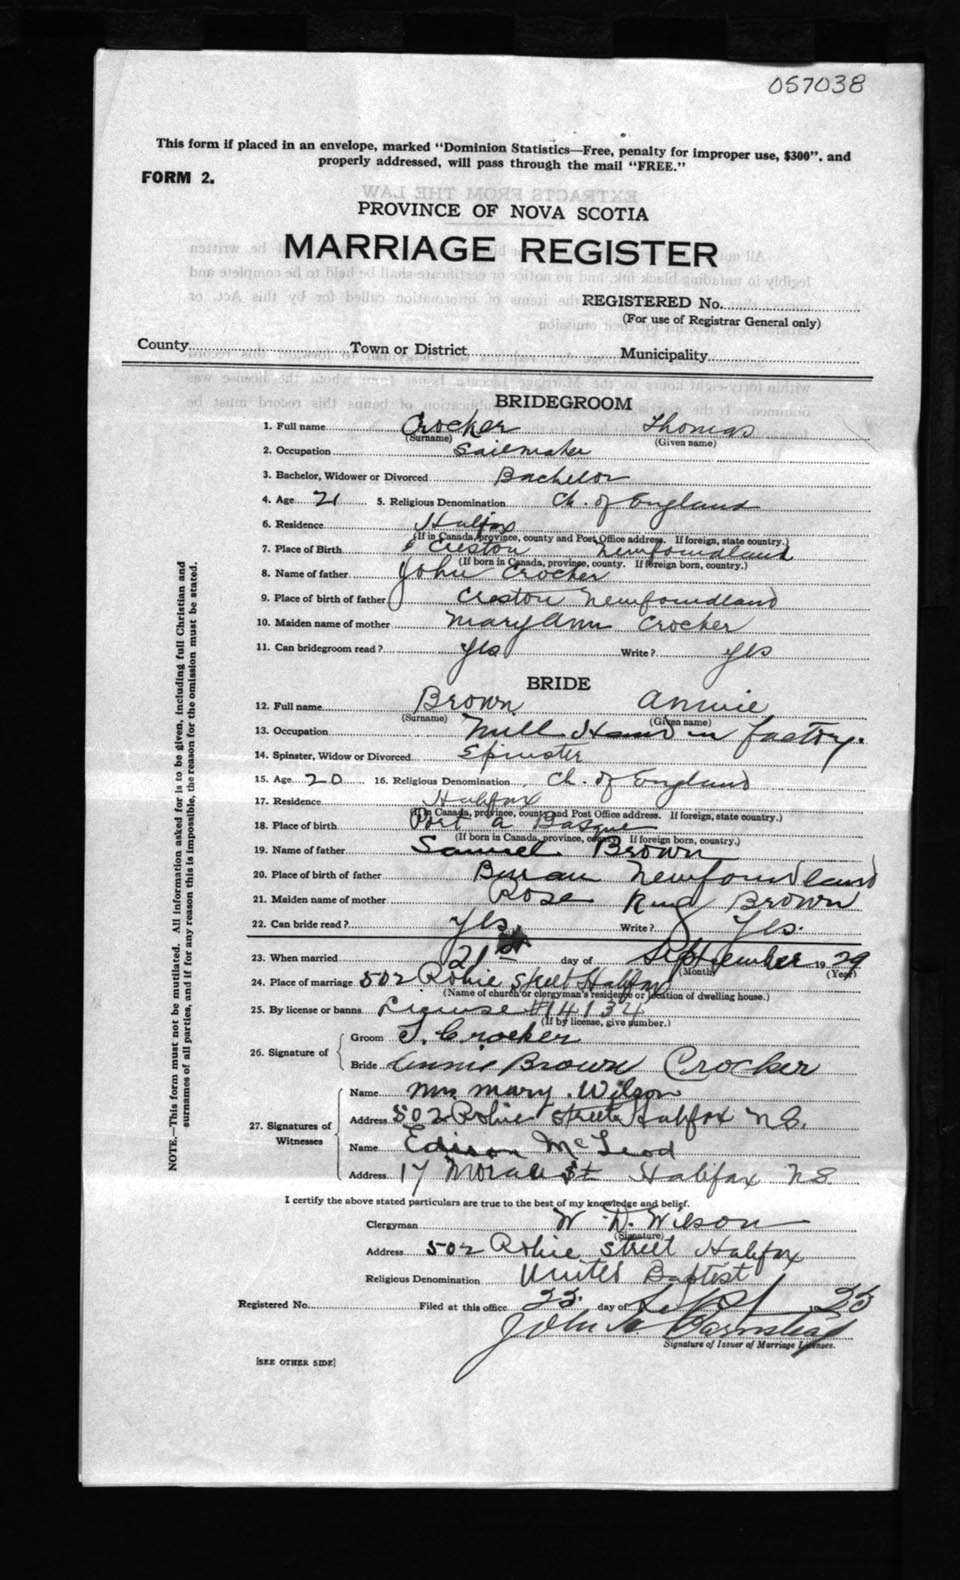 057038
This form if placed in an envelope, marked "Dominion Statistics—Free, penalty for improper use, $300", and
properly addressed, will pass through the mail "FREE."
FORM 2.
PROVINCE OF NOVA SCOTIA
MARRIAGE REGISTER
REGISTERED No.
(For use of Registrar General only)
County Town or District Municipality
BRIDEGROOM
1. Full name Crocker Thomas
(Surname) (Given name)
2. Occupation Sailmaker
3. Bachelor, Widower or Divorced Bachelor
4. Age 21 5. Religious Denomination Ch. of England
6. Residence Halifax
(If in Canada, province, county and Post Office address. If foreign, state country.)
7. Place of Birth Creston Newfoundland
(If born in Canada, province, county. If foreign born, country.)
8. Name of father John Crocker
9. Place of birth of father Creston Newfoundland
10. Maiden name of mother Mary Ann Crocker
11. Can bridegroom read? Yes Write? Yes
BRIDE
12. Full name Brown Annie
(Surname) (Given name)
13. Occupation Mill Hand in factory.
14. Spinster, Widow or Divorced Spinster
15. Age 20 16. Religious Denomination Ch. of England
17. Residence Halifax
(If in Canada, province, county and Post Office address. If foreign, state country.)
18. Place of birth Port a Basque
(If born in Canada, province, county. If foreign born, country.)
19. Name of father Samuel Brown
20. Place of birth of father Burin Newfoundland
21. Maiden name of mother Rose Brown
22. Can bride read? Yes Write? Yes.
23. When married 21st day of September 1929
(Month) (Year)
24. Place of marriage 502 Robie Street Halifax
(Name of church or clergyman's residence or location of dwelling house.)
25. By license or banns License #14134
(If by license, give number.)
26. Signature of
Groom T. Crocker
Bride Annie Brown Crocker
27. Signatures of
Witnesses
Name Mrs Mary. Wilson
Address 502 Robie Street Halifax N.S.
Name Edison McLeod
Address 17 St Halifax N.S.
I certify the above stated particulars are true to the best of my knowledge and belief.
Clergyman W. D. Wilson
(Signature)
Address 502 Robie Street Halifax
Religious Denomination United Baptist
Registered No. Filed at this office 23. day of Sept
John
Signature of Issuer of Marriage Licenses.
[SEE OTHER SIDE]
NOTE.—This form must not be mutilated. All information asked for is to be given, including full Christian and
surnames of all parties, and if for any reason this is impossible, the reason for the omission must be stated.